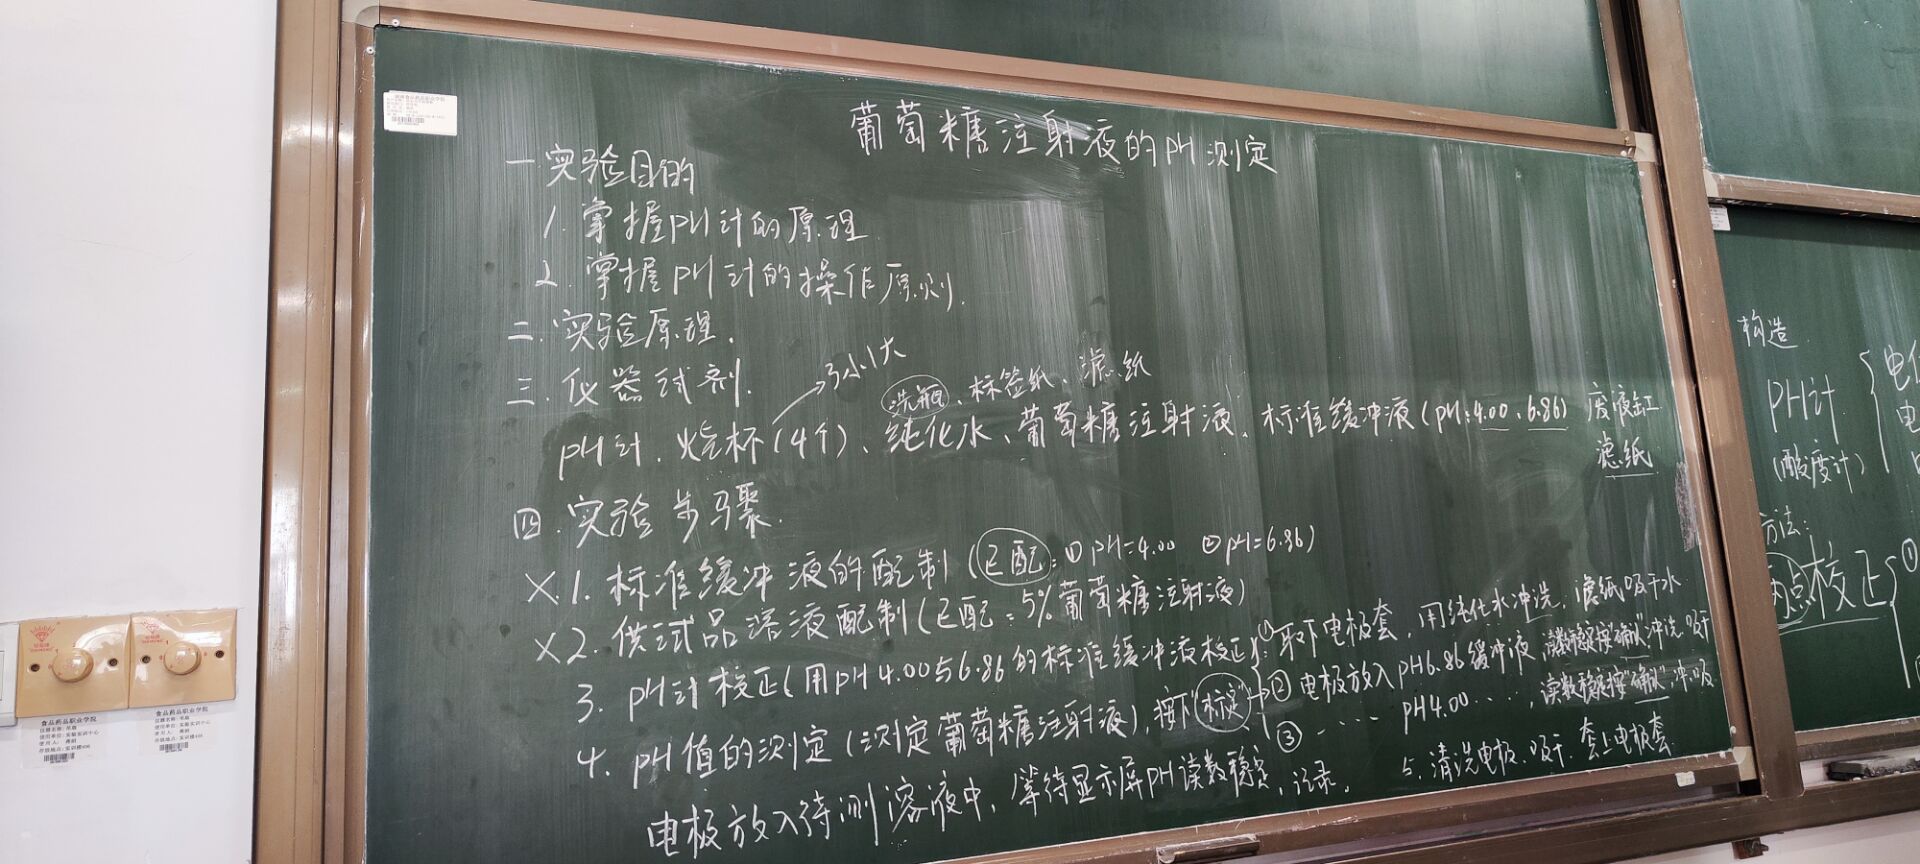 葡萄糖注射液的PH测定
一 实验目的
1. 掌握PH计的原理
2. 掌握PH计的操作原则.
二. 实验原理.
三. 仪器试剂.
3小1大
洗瓶、标签纸、滤纸
PH计、烧杯(4个)、纯化水、葡萄糖注射液、标准缓冲液(PH:4.00、6.86) 废液缸
滤纸
四. 实验步骤.
×1. 标准缓冲液的配制(已配:① PH=4.00 ② PH=6.86)
×2. 供试品溶液配制(已配:5%葡萄糖注射液)
3. PH计校正(用PH4.00与6.86的标准缓冲液校正):
按下"标定"
① 取下电极套, 用纯化水冲洗, 滤纸吸干水
② 电极放入PH6.86缓冲液, 读数稳定按"确认"冲洗.吸干
③ ‥ ‥ PH4.00 ‥‥, 读数稳定按"确认".冲.吸
4. PH值的测定(测定葡萄糖注射液),
电极放入待测溶液中, 等待显示屏PH读数稳定, 记录.
5. 清洗电极.吸干. 套上电极套
构造
PH计
(酸度计)
方法:
两点校正
①
食品药品职业学院
食品药品职业学院